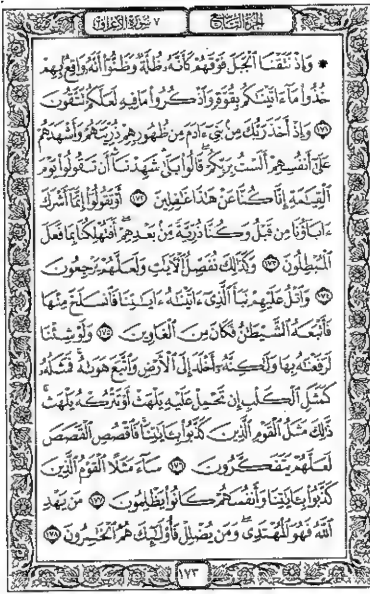 الجزء التاسع ٧ سورة الأعراف
* وَإِذْ نَتَقْنَا ٱلْجَبَلَ فَوْقَهُمْ كَأَنَّهُۥ ظُلَّةٌ وَظَنُّوٓا۟ أَنَّهُۥ وَاقِعٌۢ بِهِمْ
خُذُوا۟ مَآ ءَاتَيْنَٰكُم بِقُوَّةٍ وَٱذْكُرُوا۟ مَا فِيهِ لَعَلَّكُمْ تَتَّقُونَ
١٧١ وَإِذْ أَخَذَ رَبُّكَ مِنۢ بَنِىٓ ءَادَمَ مِن ظُهُورِهِمْ ذُرِّيَّتَهُمْ وَأَشْهَدَهُمْ
عَلَىٰٓ أَنفُسِهِمْ أَلَسْتُ بِرَبِّكُمْ ۖ قَالُوا۟ بَلَىٰ ۛ شَهِدْنَآ ۛ أَن تَقُولُوا۟ يَوْمَ
ٱلْقِيَٰمَةِ إِنَّا كُنَّا عَنْ هَٰذَا غَٰفِلِينَ ١٧٢ أَوْ تَقُولُوٓا۟ إِنَّمَآ أَشْرَكَ
ءَابَآؤُنَا مِن قَبْلُ وَكُنَّا ذُرِّيَّةً مِّنۢ بَعْدِهِمْ ۖ أَفَتُهْلِكُنَا بِمَا فَعَلَ
ٱلْمُبْطِلُونَ ١٧٣ وَكَذَٰلِكَ نُفَصِّلُ ٱلْءَايَٰتِ وَلَعَلَّهُمْ يَرْجِعُونَ
١٧٤ وَٱتْلُ عَلَيْهِمْ نَبَأَ ٱلَّذِىٓ ءَاتَيْنَٰهُ ءَايَٰتِنَا فَٱنسَلَخَ مِنْهَا
فَأَتْبَعَهُ ٱلشَّيْطَٰنُ فَكَانَ مِنَ ٱلْغَاوِينَ ١٧٥ وَلَوْ شِئْنَا
لَرَفَعْنَٰهُ بِهَا وَلَٰكِنَّهُۥٓ أَخْلَدَ إِلَى ٱلْأَرْضِ وَٱتَّبَعَ هَوَىٰهُ ۚ فَمَثَلُهُۥ
كَمَثَلِ ٱلْكَلْبِ إِن تَحْمِلْ عَلَيْهِ يَلْهَثْ أَوْ تَتْرُكْهُ يَلْهَث ۚ
ذَّٰلِكَ مَثَلُ ٱلْقَوْمِ ٱلَّذِينَ كَذَّبُوا۟ بِـَٔايَٰتِنَا ۚ فَٱقْصُصِ ٱلْقَصَصَ
لَعَلَّهُمْ يَتَفَكَّرُونَ ١٧٦ سَآءَ مَثَلًا ٱلْقَوْمُ ٱلَّذِينَ
كَذَّبُوا۟ بِـَٔايَٰتِنَا وَأَنفُسَهُمْ كَانُوا۟ يَظْلِمُونَ ١٧٧ مَن يَهْدِ
ٱللَّهُ فَهُوَ ٱلْمُهْتَدِى ۖ وَمَن يُضْلِلْ فَأُو۟لَٰٓئِكَ هُمُ ٱلْخَٰسِرُونَ ١٧٨
١٧٣